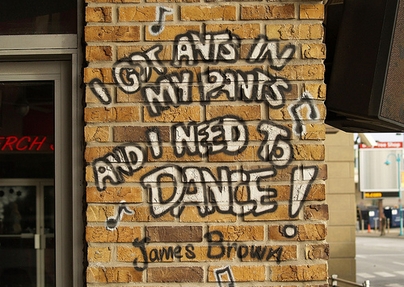 I GOT ANTS IN
MY PANTS
AND I NEED TO
DANCE!
James Brown
ERCH
Free Shop